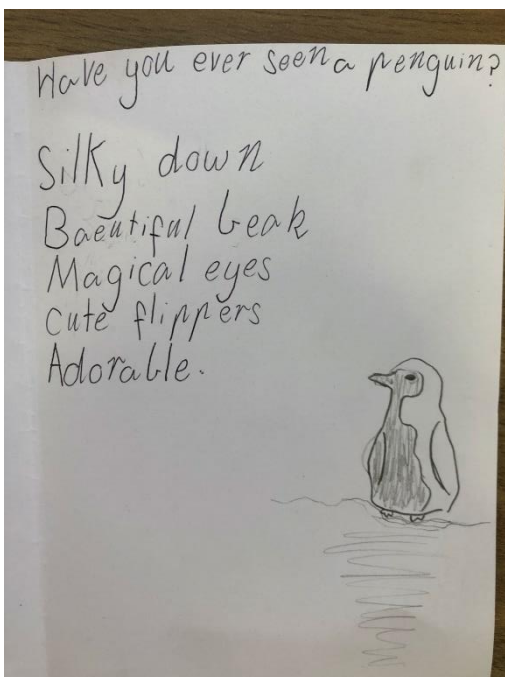 Have you ever seen a penguin?
Silky down
Baeutiful beak
Magical eyes
Cute flippers
Adorable.